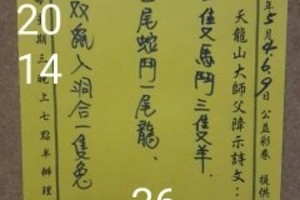 年5月4.6.9日公益彩券 提供
天龍山大師父降示詩文：
隻馬鬥三隻羊.
尾蛇鬥一尾龍、
双龍入洞合一隻兔
期三晚上七點半辦理
20
14
26